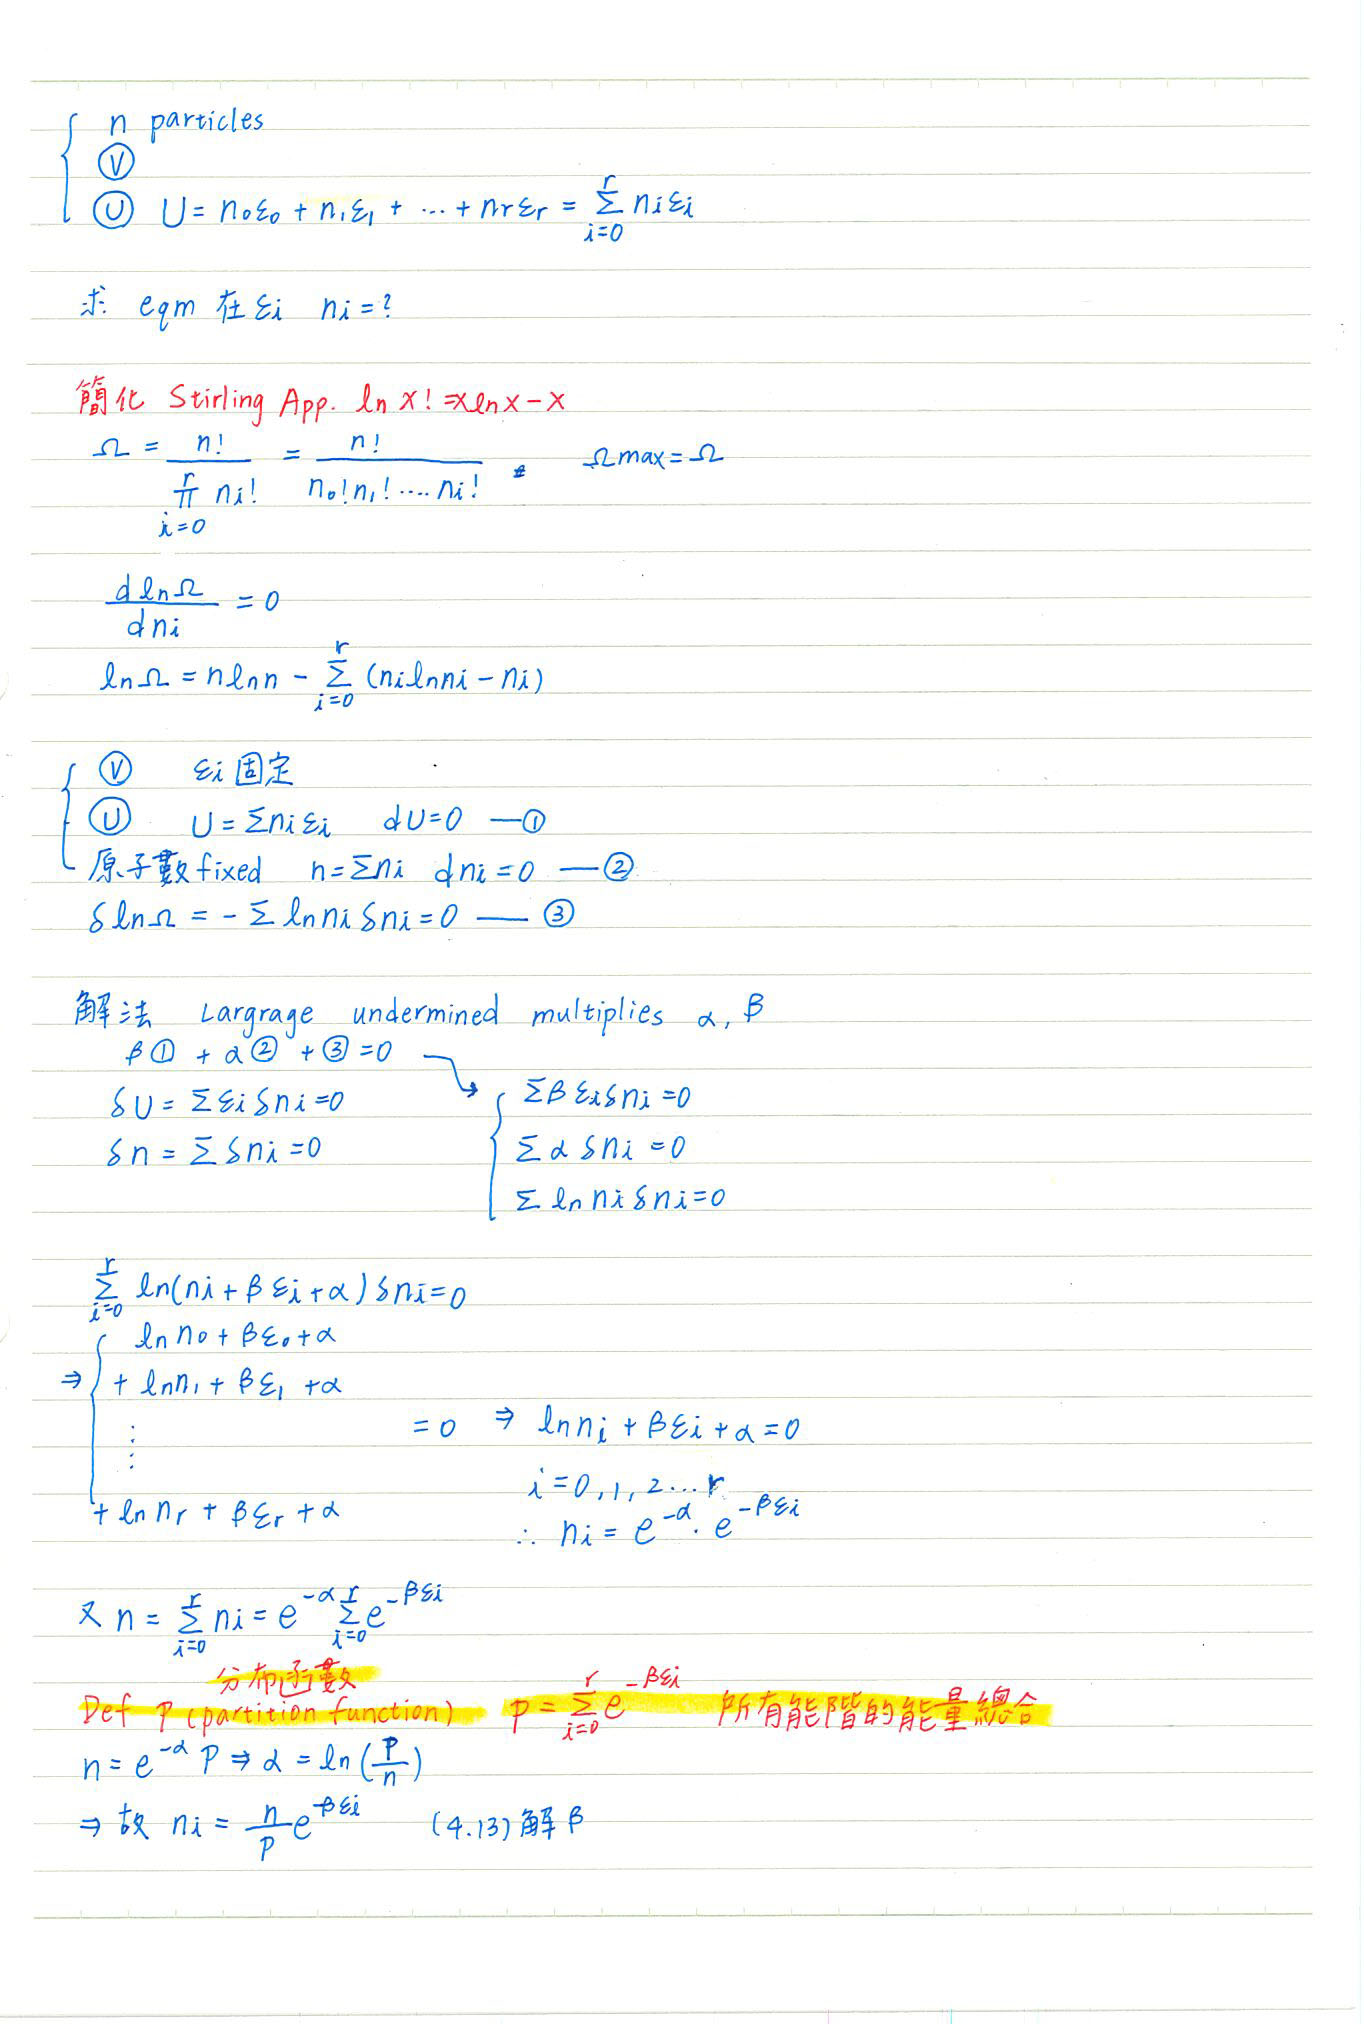 n particles
Ⓥ
Ⓤ U = n₀ε₀ + n₁ε₁ + ... + nrεr = Σ(i=0→r) niεi
求 eqm 在 εi ni = ?
簡化 Stirling App. ln x! = xlnx - x
Ω = n! / Π(i=0→r) ni! = n! / n₀!n₁!....ni! Ωmax = Ω
dlnΩ / dni = 0
lnΩ = nlnn - Σ(i=0→r) (nilnni - ni)
Ⓥ εi 固定
Ⓤ U = Σniεi dU=0 —①
原子數 fixed n=Σni dni=0 —②
δlnΩ = -Σ lnni δni = 0 —③
解法 Largrage undermined multiplies α, β
β① + α② + ③ = 0
δU = Σεiδni = 0
δn = Σδni = 0
Σβεiδni = 0
Σαδni = 0
Σ lnniδni = 0
Σ(i=0→r) ln(ni + βεi + α)δni = 0
⇒ lnn₀ + βε₀ + α
+ lnn₁ + βε₁ + α
⋮ = 0 ⇒ lnni + βεi + α = 0
i = 0, 1, 2...r
+ lnnr + βεr + α
∴ ni = e^-α · e^-βεi
又 n = Σ(i=0→r) ni = e^-α Σ(i=0→r) e^-βεi
分布函數
Def P (partition function) P = Σ(i=0→r) e^-βεi 所有能階的能量總合
n = e^-α P ⇒ α = ln(P/n)
⇒ 故 ni = n/P e^-βεi (4.13) 解 β